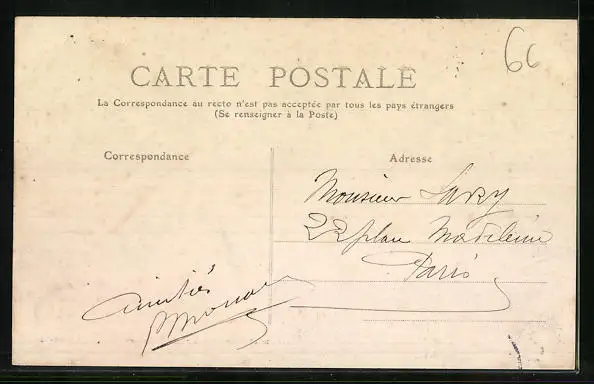 6c
CARTE POSTALE
La Correspondance au recto n'est pas acceptée par tous les pays étrangers
(Se renseigner à la Poste)
Correspondance
Adresse
Monsieur Lary
22 place Madeleine
Paris
Amitiés